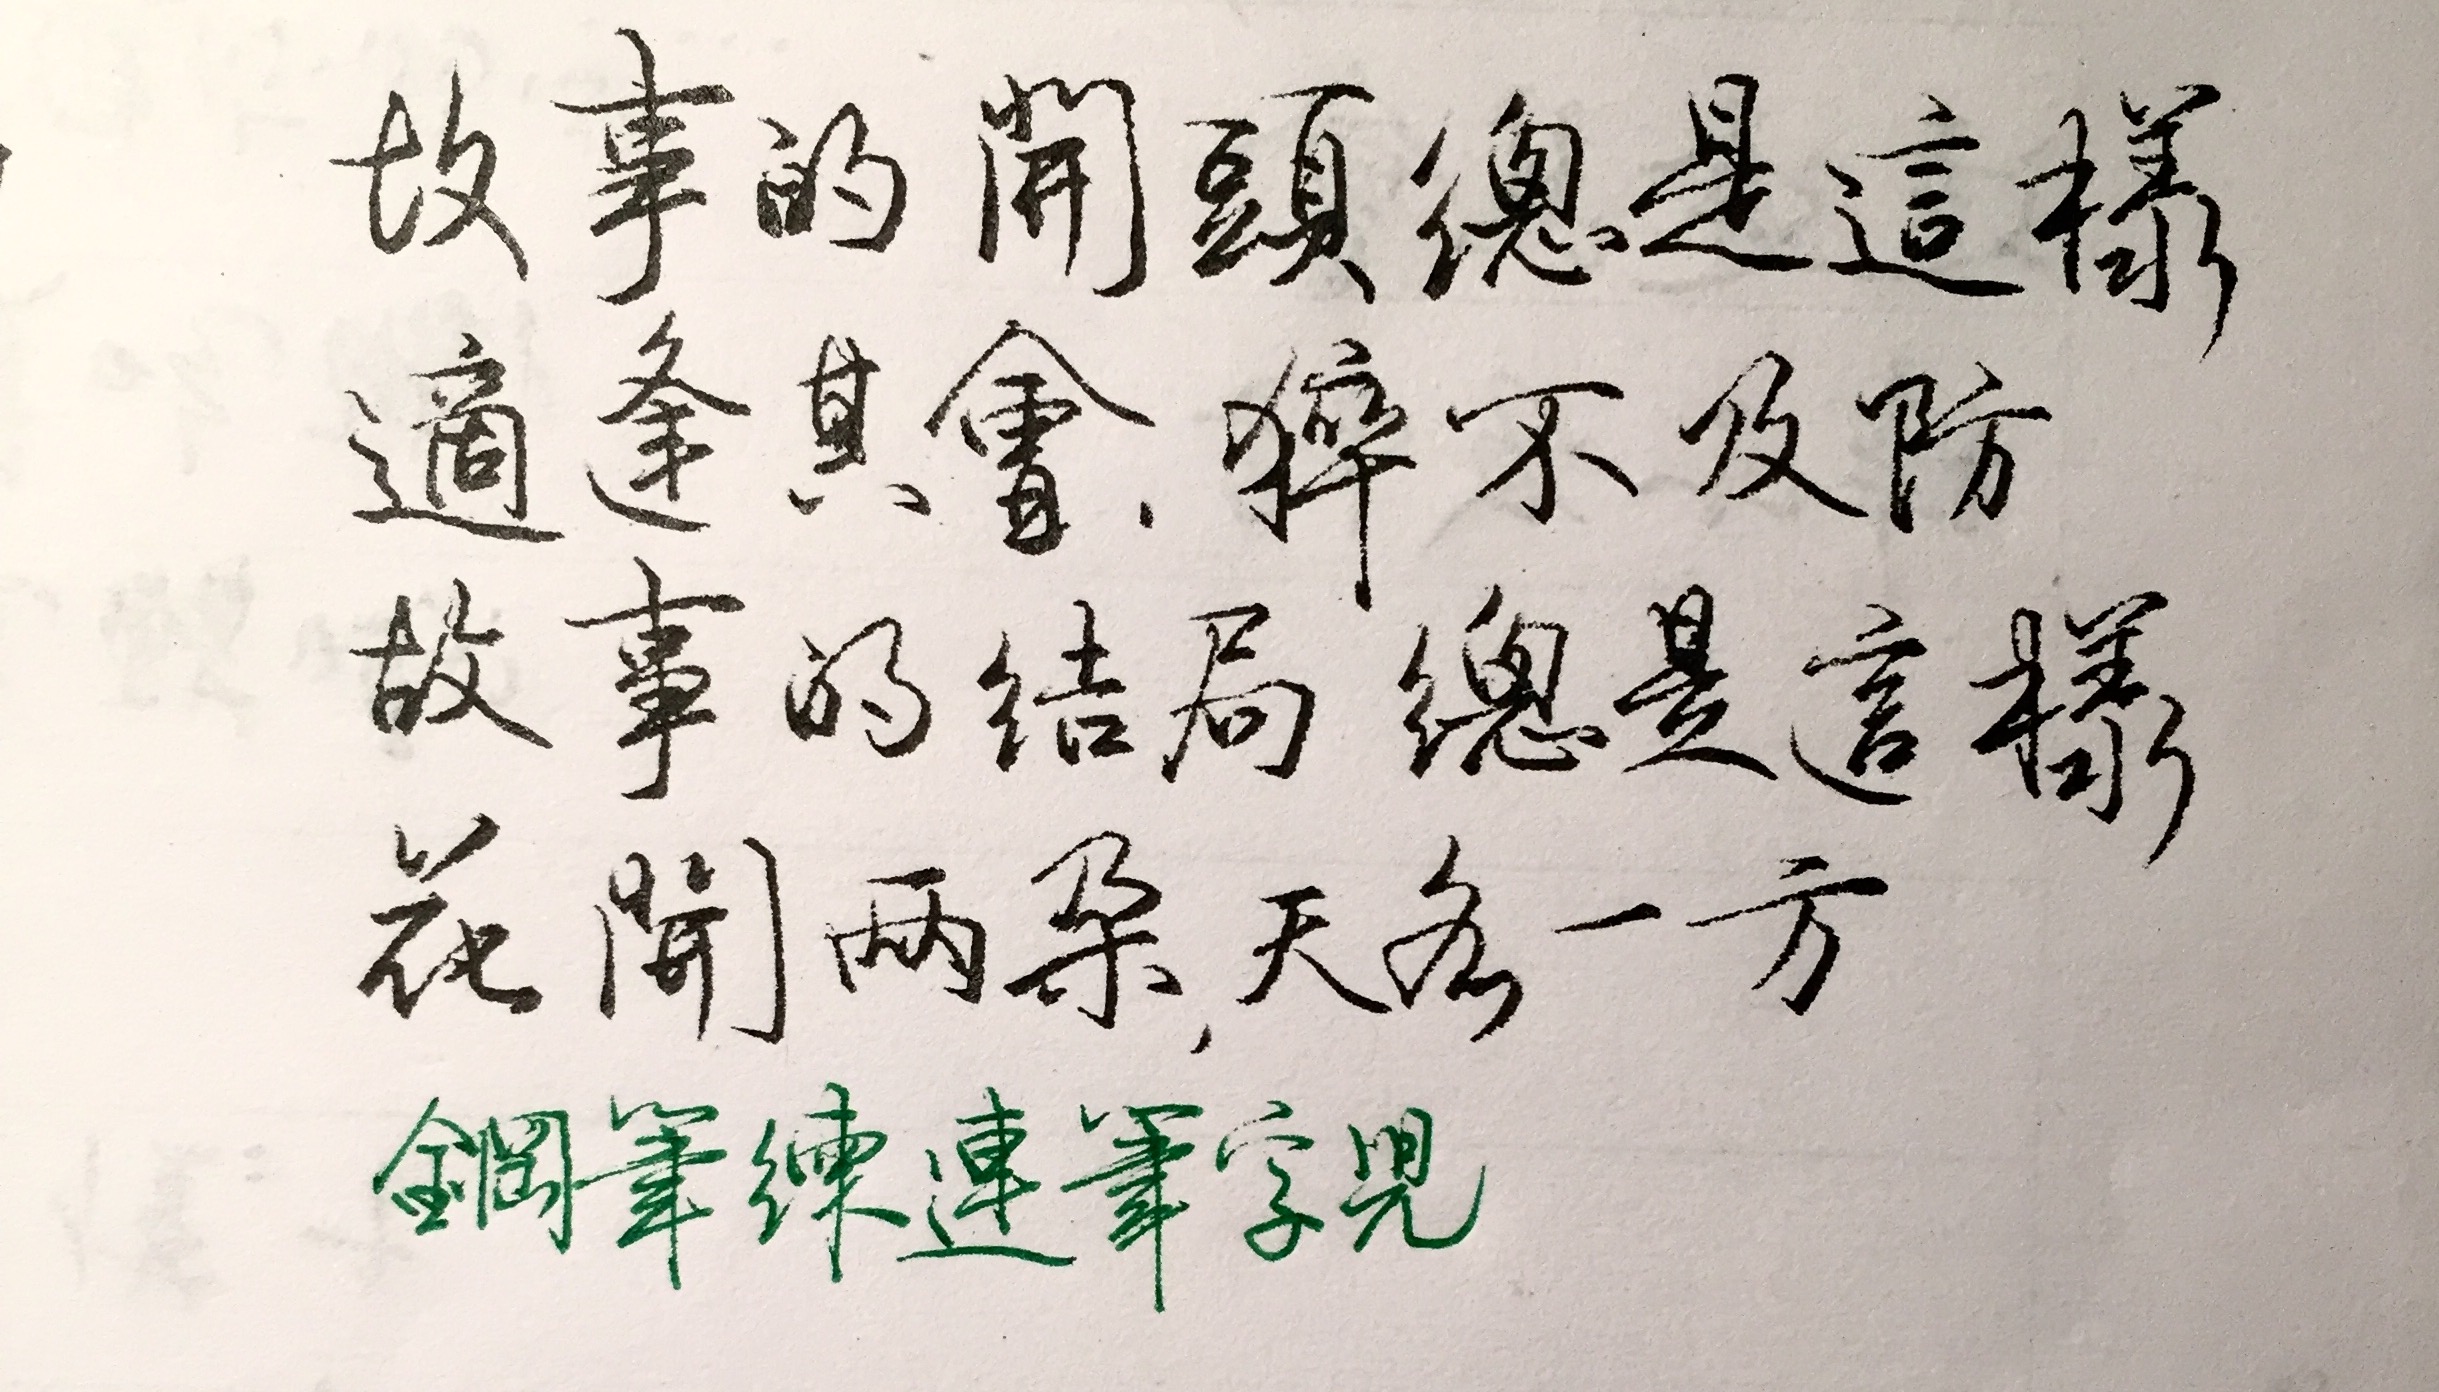 故事的開頭總是這樣
適逢其會，猝不及防
故事的结局總是這樣
花開两朵，天各一方
鋼筆練連筆字兒